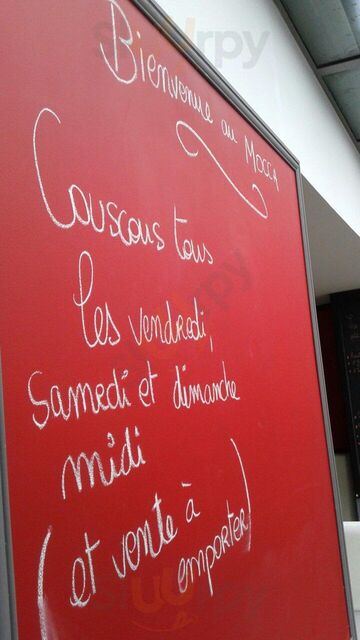 Bienvenue au MOCCA
Couscous tous
les vendredi,
Samedi et dimanche
midi
(et vente à
emporter)